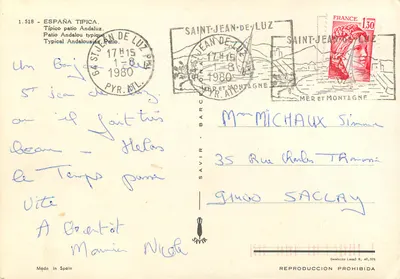 1.518 - ESPAÑA TIPICA
Típico patio Andaluz
Patio Andalou typique
Typical Andalousian Patio
64 ST JEAN DE LUZ
17H15
1980
PYR. ATL.
SAINT-JEAN-DE-LUZ
MER ET MONTAGNE
64 ST JEAN DE LUZ
17H15
1980
PYR. ATL.
MER ET MONTAGNE
FRANCE
1,30
Un
St Jean de Luz
où il fait très
beau - Hélas
le Temps passe
vite
A Bientôt
Nicole
SAVIR - BARC
Mme MICHAUX Simone
35 Rue Charles
91400 SACLAY
Made in Spain
REPRODUCCIÓN PROHIBIDA